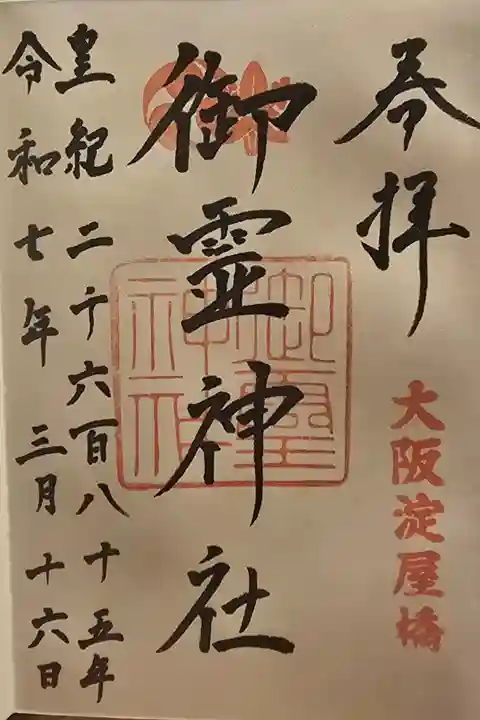 奉拝
大阪淀屋橋
御霊神社
御霊神社
皇紀二千六百八十五年
令和七年三月十六日